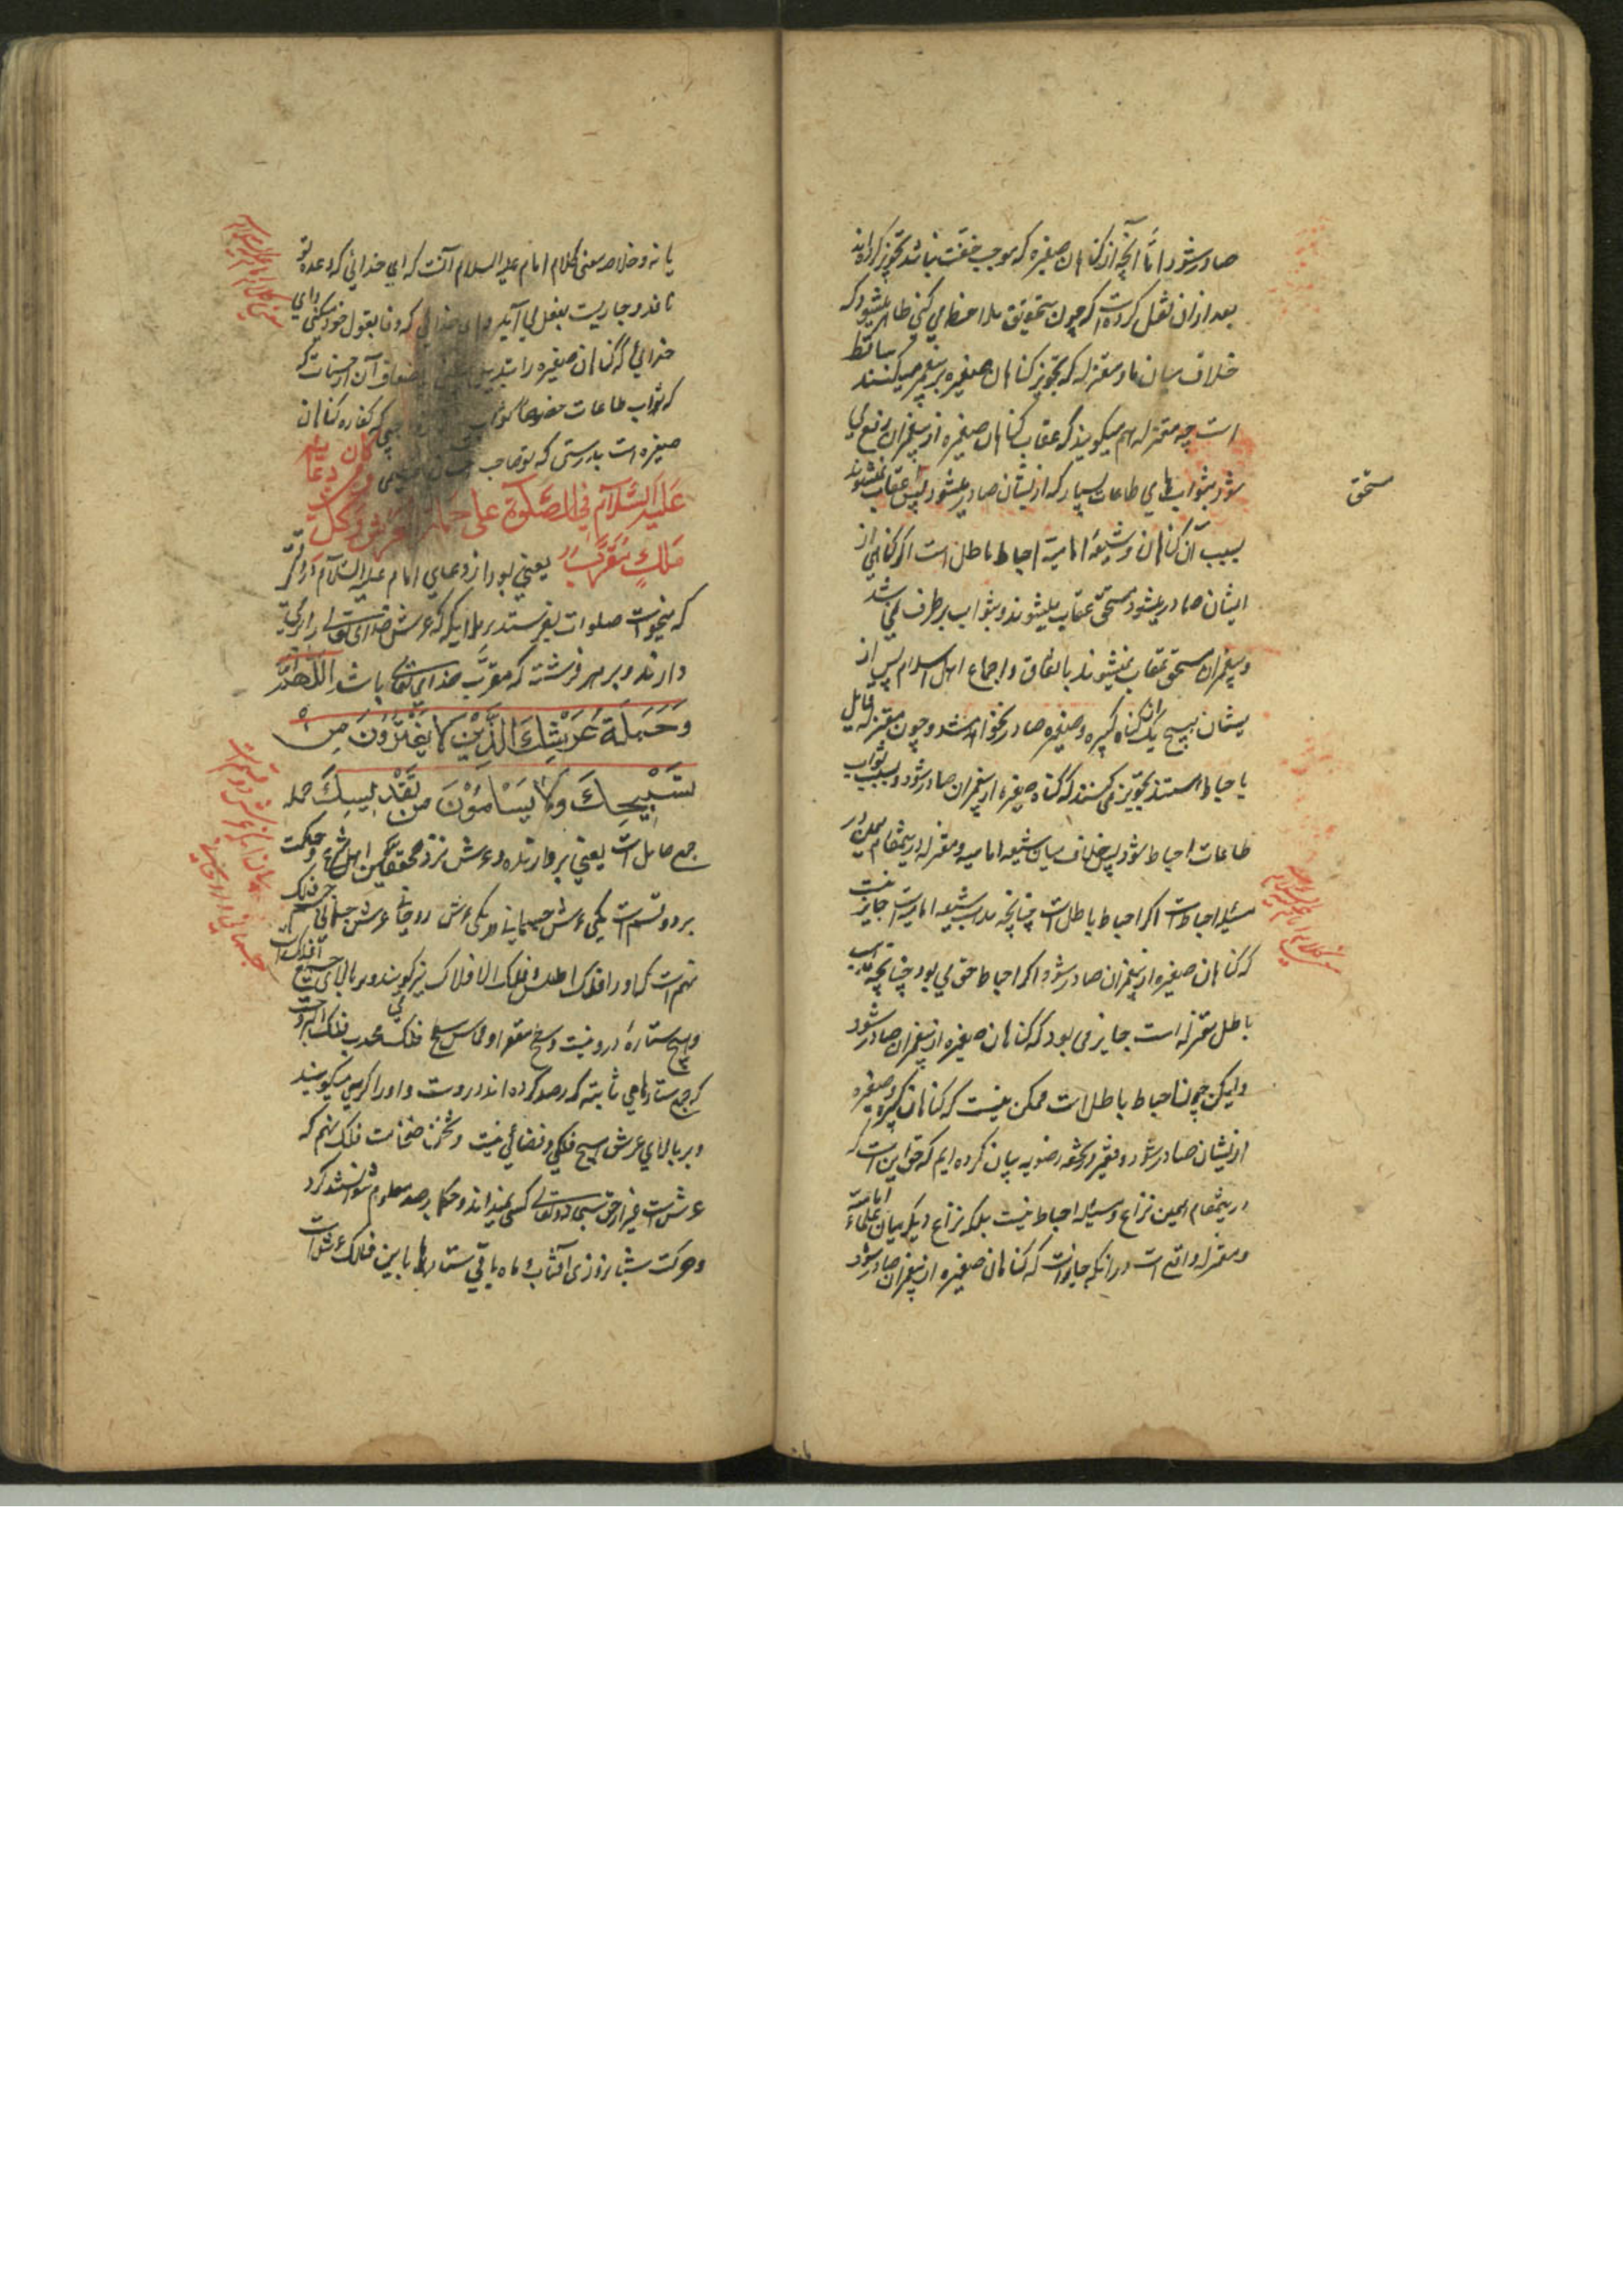 صادر شود اما آنچه از گناهان صغیره که موجب خفت نباشد تجویز کرده‌اند
بعد از آن نقل کرده است که چون بتحقیق ملاحظه می کنی ظاهر میشود که
خلاف میان ما و معتزله که تجویز گناهان صغیره بر پیغمبر میکنند ساقط
است چه معتزله هم میگویند که عقاب گناهان صغیره از پیغمبران رفع می
شود بثوابهای طاعات بسیار که از یشان صادر میشود پس عقاب نمیشوند
مستحق
بسبب آن گناهان و شیعهٔ امامیه احباط باطل است اگر گناهی از
ایشان صادر میشود مستحق عقاب میشوند و بثواب برطرف نمی باشد
و پیغمبران مستحق عقاب نمیشوند باتفاق و اجماع اهل اسلام پس از
یشان هیچ یک از ان گناه کبیره و صغیره صادر نخواهد شد و چون معتزله قایل
باحباط هستند تجویز می کنند که گناه صغیره از پیغمبران صادر شود و بسبب ثواب
طاعات احباط شود پس خلاف میان شیعه امامیه و معتزله درینمقام همین در
مسئله احباط است اگر احباط باطل است چنانچه مذهب شیعه امامیه است جایز نیست
که گناهان صغیره از پیغمبران صادر شود و اگر احباط حق می بود چنانچه مذهب
باطل معتزله است جایز می بود که گناهان صغیره از پیغمبران صادر شود
ولیکن چون احباط باطل است ممکن نیست که گناهان کبیره و صغیره
از یشان صادر شود و فقیر در تحفه رضویه بیان کرده ایم که حق این است که
درینمقام همین نزاع در مسئله احباط نیست بلکه نزاع دیگر میان علماء امامیه
و معتزله واقع است در آنکه جایز است که گناهان صغیره از پیغمبران صادر شود
یا نه و خلاصه معنی کلام امام علیه السلام آنست که ای خدائی که وعده تو
نافذ و جاریست بفعل می آید و ای خدائی که وفا بقول خود میکنی و ای
خدائی که گناهان صغیره را تبدیل باضعاف آن از حسنات که
که ثواب طاعات که کفاره گناهان
صغیره است بدرستی که تو صاحب
وکان من دعائه
علیه السلام فی الصلوة علی حملة العرش وکل
ملک مقرب یعنی بود از دعای امام علیه السلام در وقتی
که میخواست صلوات بفرستد بر ملایکه که عرش خدای تعالی را برمی
دارند و بر هر فرشته که مقرب خدای تعالی باشد اللهم
وحملة عرشک الذین لا یفترون من
تسبیحک ولا یسأمون من تقدیسک حمله
جمع حامل است یعنی بردارنده و عرش نزد محققین اهل شرع و حکمت
بر دو قسمست یکی عرش جسمانی و یکی عرش روحانی عرش جسمانی فلک
نهم است که او را فلک اطلس و فلک الافلاک نیز گویند و بر بالای جمیع افلاک است
و هیچ ستارهٔ درو نیست و سطح مقعر او مماس سطح محدب فلک البروج است
که جمیع ستارهای ثابته که رصد کرده اند دروست و او را کرسی میگویند
و بر بالای عرش هیچ فلکی و فضائی نیست و ثخن ضخامت فلک نهم که
عرش است غیر از حق سبحانه و تعالی کسی نمیداند و حکما برصد معلوم نتوانستند کرد
و حرکت شبانروزی آفتاب و ماه و باقی ستارها باین فلک عرش است